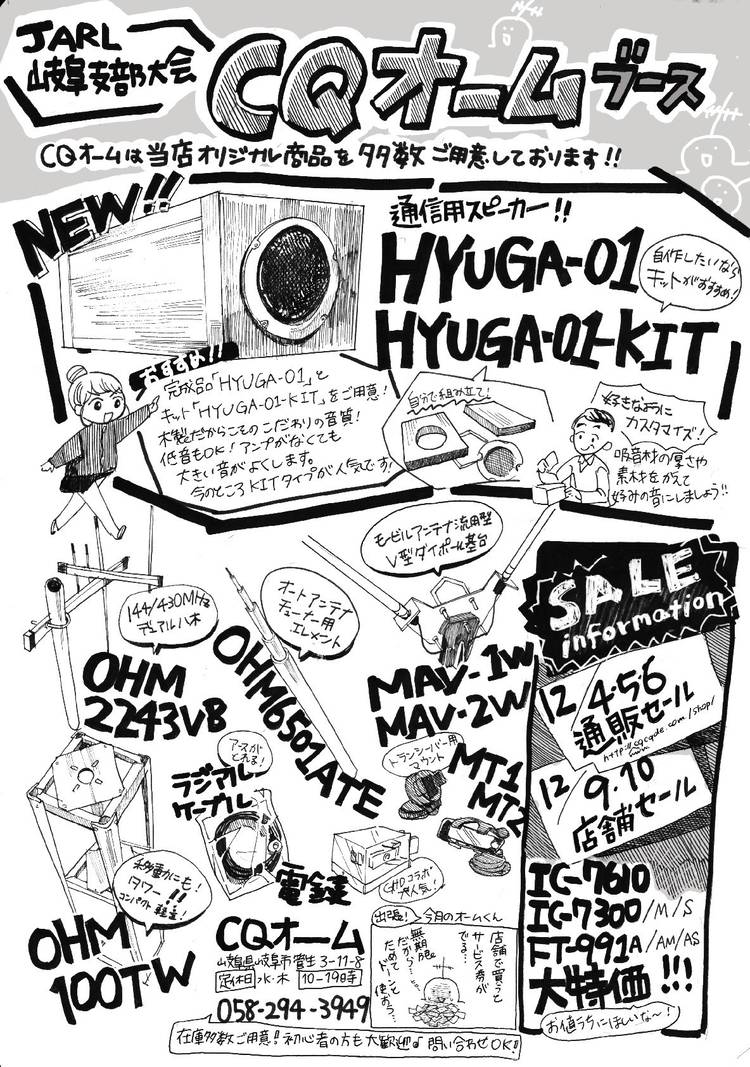 JARL
岐阜支部大会
CQオームブース
CQオームは当店オリジナル商品を多数ご用意しております!!
NEW!!
通信用スピーカー!!
HYUGA-01
HYUGA-01-KIT
自作したいなら
キットがおすすめ!
おすすめ!!
完成品「HYUGA-01」と
キット「HYUGA-01-KIT」をご用意!
木製だからこそのこだわりの音質!
低音もOK!アンプがなくても
大きい音がよくします。
今のところKITタイプが人気です!
自分で組み立て!
好きなように
カスタマイズ!
吸音材の厚さや
素材をかえて
好みの音にしましょう!!
144/430MHz
デュアル八木
OHM
2243VB
オートアンテナ
チューナー用
エレメント
OHM6501ATE
モービルアンテナ流用型
V型ダイポール基台
MAV-1W
MAV-2W
SALE
information
12/4・5・6
通販セール
12/9.10
店舗セール
IC-7610
IC-7300/M/S
FT-991A/AM/AS
大特価!!!
お値うちにほしいな~!
アースが
とれる!
ラジアル
ケーブル
トランシーバー用
マウント
MT1
MT2
移動運用にも!
タワー!!
コンパクト軽量!
OHM
100TW
電鍵
GHDコラボ
大人気!
CQオーム
岐阜県岐阜市菅生3-11-8
定休日 火・木 10-19時
058-294-3949
出張! 今月のオームくん
店舗で買うと
サービス券が
でる…
無期限
だから
ためて
使おう…
在庫多数ご用意!!初心者の方も大歓迎♪問い合わせOK!!